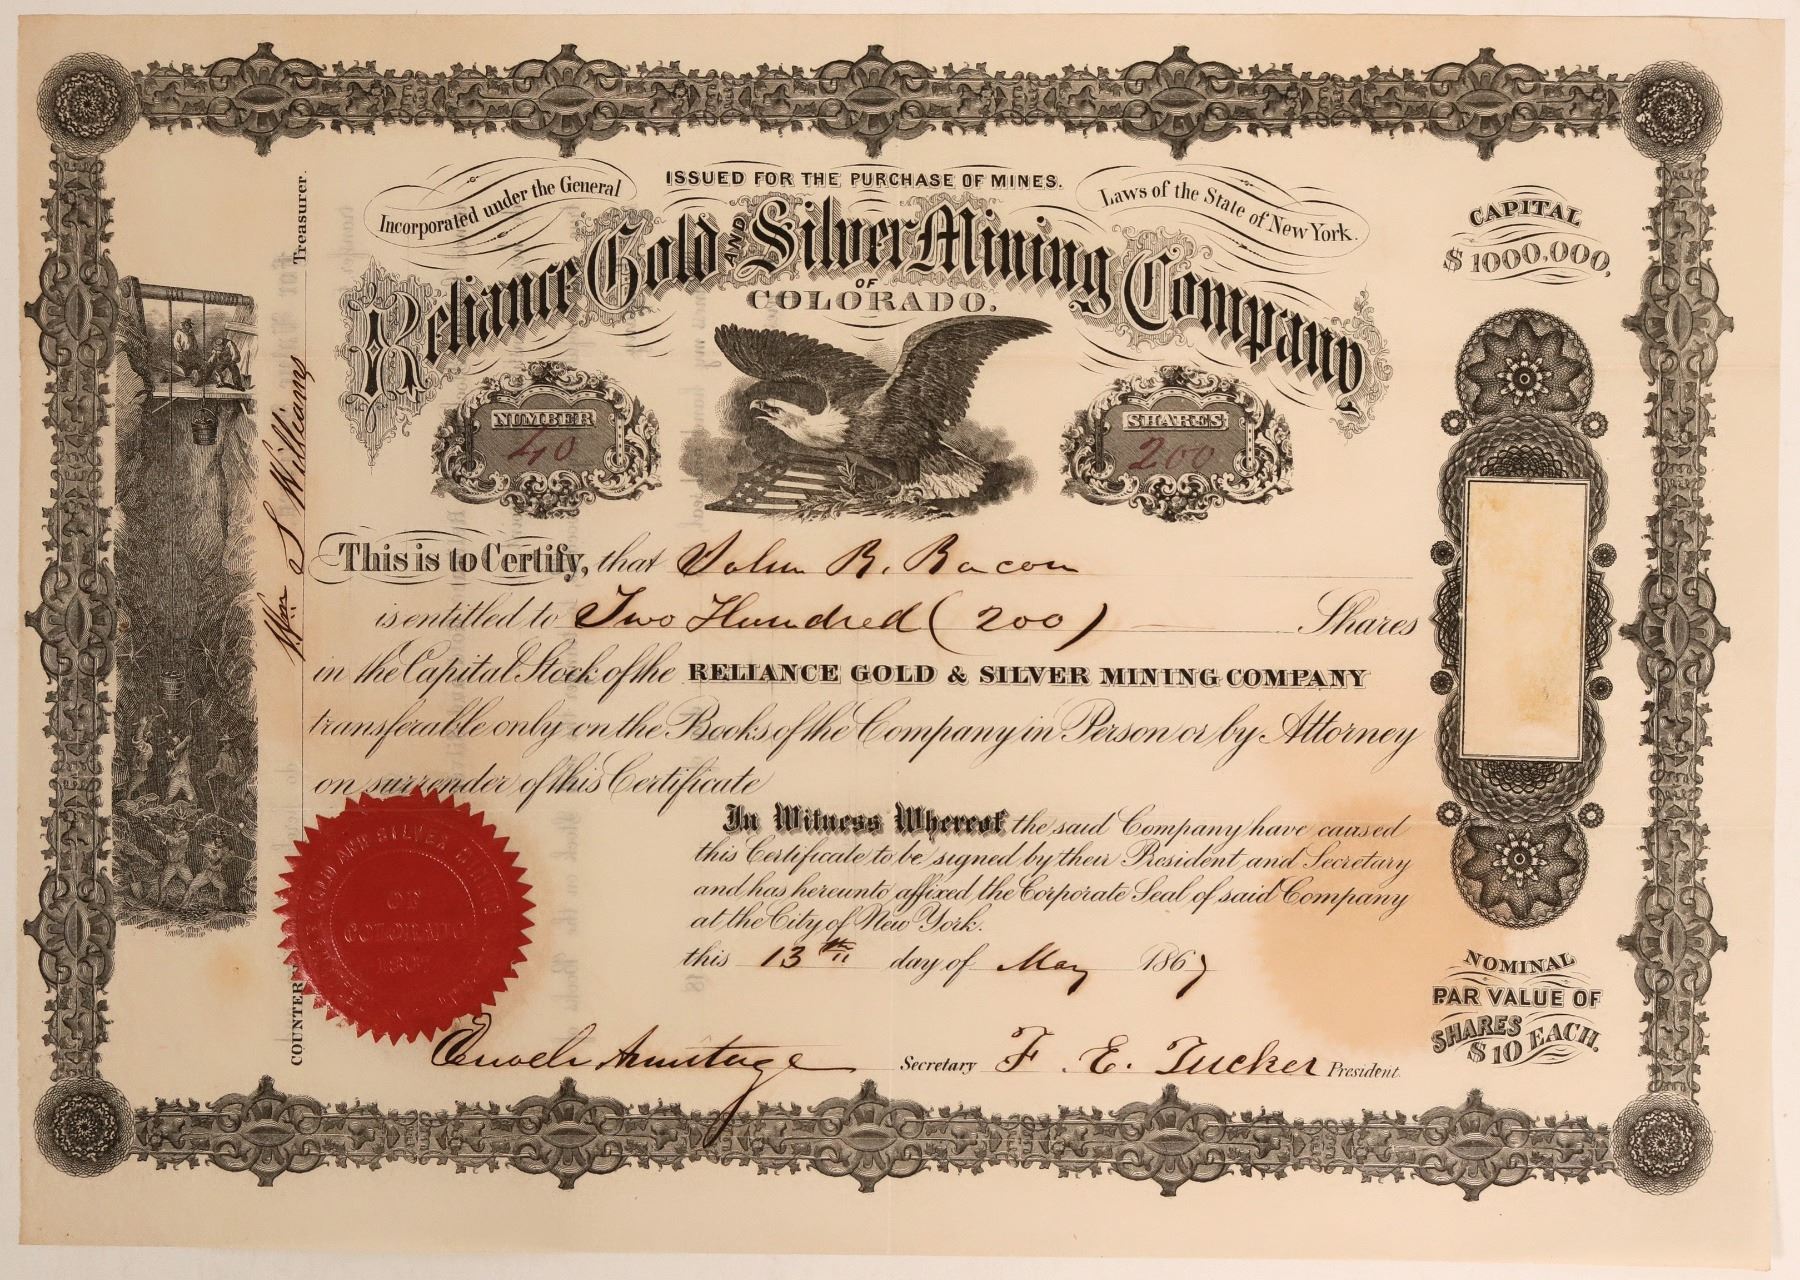 ISSUED FOR THE PURCHASE OF MINES.
Incorporated under the General
Laws of the State of New York.
Reliance Gold AND Silver Mining Company
OF
COLORADO.
CAPITAL
$1000,000,
NUMBER
40
SHARES
200
This is to Certify, that John R. Bacon
is entitled to Two Hundred (200) Shares
in the Capital Stock of the RELIANCE GOLD & SILVER MINING COMPANY
transferable only on the Books of the Company in Person or by Attorney
on surrender of this Certificate
In Witness Whereof the said Company have caused
this Certificate to be signed by their President and Secretary
and has hereunto affixed the Corporate Seal of said Company
at the City of New York.
this 13th day of May 1867
Enoch Armitage Secretary F. E. Tucker President
COUNTER
Wm S Williams
Treasurer.
GOLD AND SILVER MINING
OF
COLORADO
1867
NOMINAL
PAR VALUE OF
SHARES
$10 EACH.